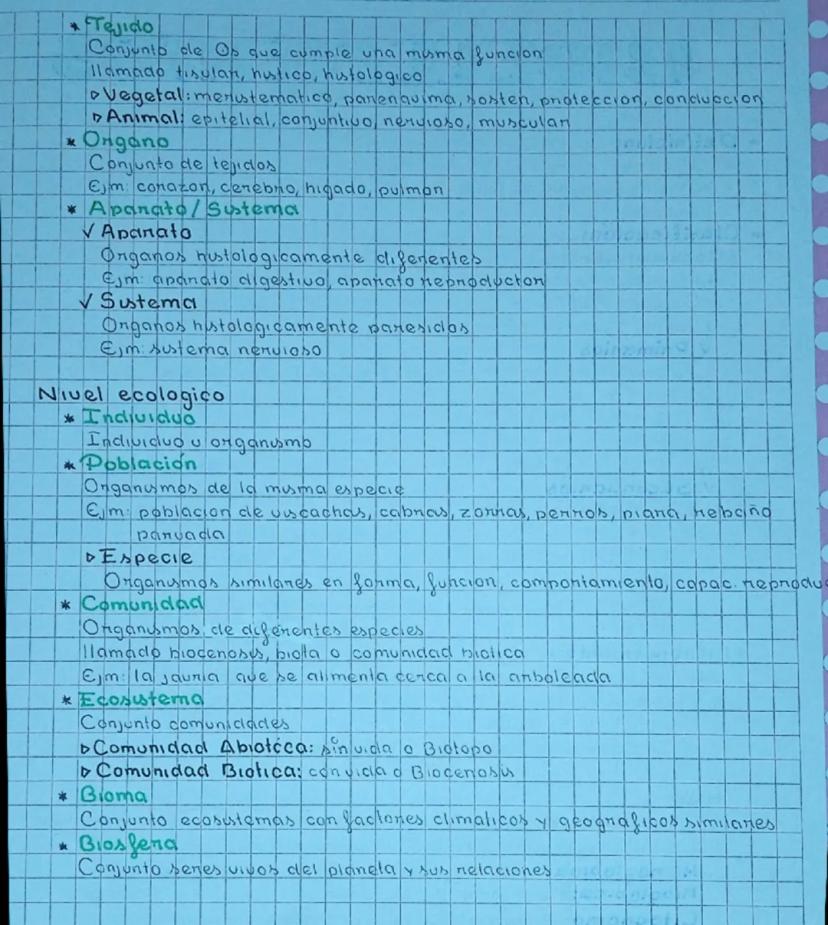 * Tejido
Conjunto de Ob que cumple una misma funcion
llamado tisular, histico, histologico
▷ Vegetal: meristematico, parenquima, sosten, proteccion, conduccion
▷ Animal: epitelial, conjuntivo, nervioso, muscular
* Organo
Conjunto de tejidos
Ejm: corazon, cerebro, higado, pulmon
* Aparato/Sistema
✓ Aparato
Organos histologicamente diferentes
Ejm: aparato digestivo, aparato reproductor
✓ Sistema
Organos histologicamente paresidos
Ejm: sistema nervioso
Nivel ecologico
* Individuo
Individuo u organismo
* Población
Organismos de la misma especie
Ejm: poblacion de viscachas, cabras, zorras, perros, piara, rebaño
parvada
▷ Especie
Organismos similares en forma, funcion, comportamiento, capac. reprodu
* Comunidad
Organismos de diferentes especies
llamado biocenosis, biota o comunidad biotica
Ejm: la jauria que se alimenta cerca a la arboleada
* Ecosistema
Conjunto comunidades
▷ Comunidad Abiotica: sin vida o Biotopo
▷ Comunidad Biotica: con vida o Biocenosis
* Bioma
Conjunto ecosistemas con factores climaticos y geograficos similares
* Biosfera
Conjunto seres vivos del planeta y sus relaciones